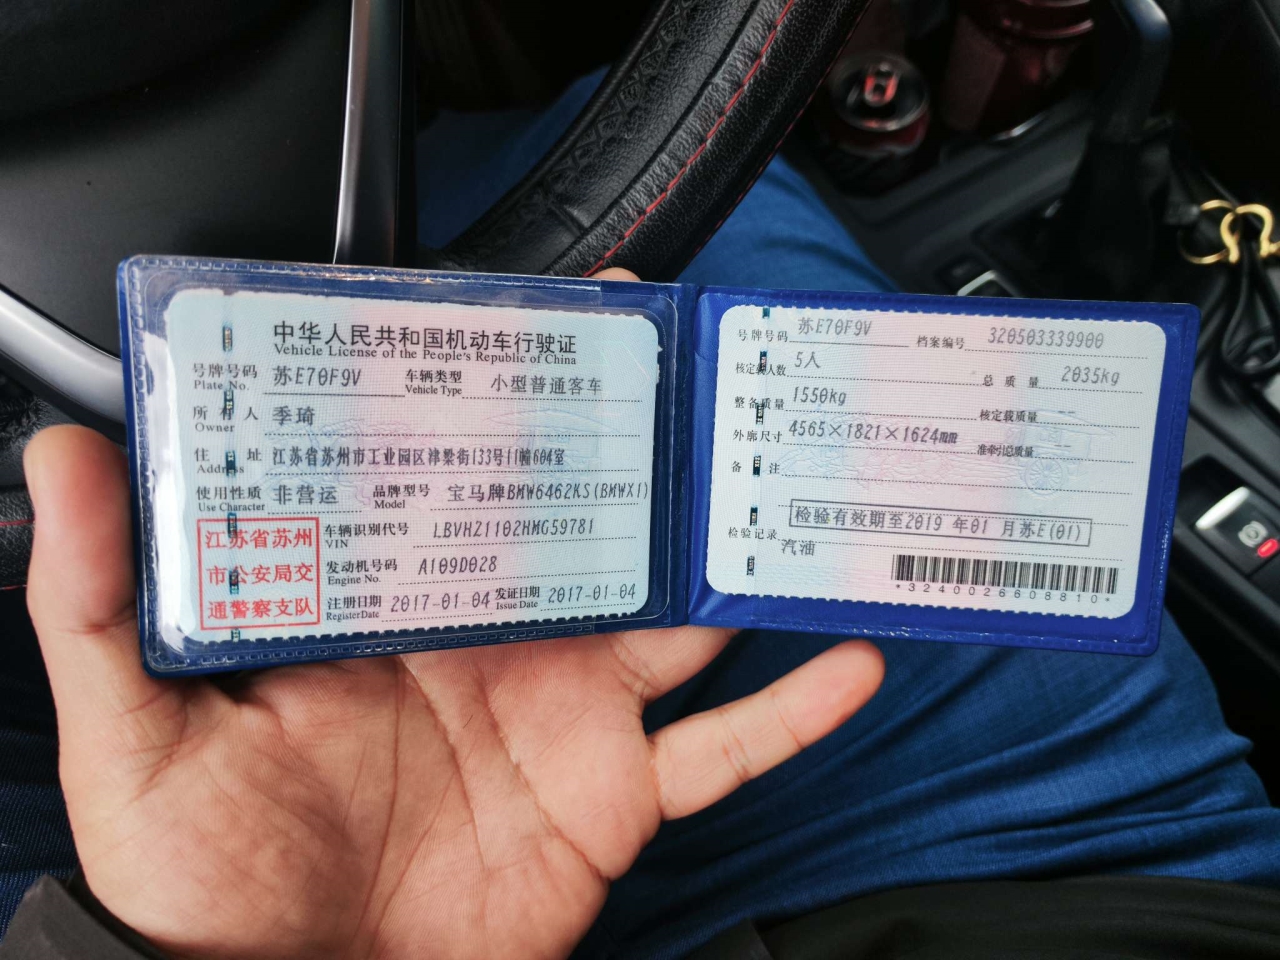 中华人民共和国机动车行驶证
Vehicle License of the People's Republic of China
号牌号码 苏E70F9V 车辆类型 小型普通客车
Plate No. Vehicle Type
所有人 季琦
Owner
住址 江苏省苏州市工业园区津梁街133号11幢604室
Address
使用性质 非营运 品牌型号 宝马牌BMW6462KS(BMWX1)
Use Character Model
江苏省苏州
市公安局交
通警察支队
车辆识别代号 LBVHZ1102HMG59781
VIN
发动机号码 A109D028
Engine No.
注册日期 2017-01-04 发证日期 2017-01-04
Register Date Issue Date
号牌号码 苏E70F9V 档案编号 320503339900
核定载人数 5人 总质量 2035kg
整备质量 1550kg 核定载质量 --
外廓尺寸 4565×1821×1624mm 准牵引总质量 --
备注
检验有效期至2019年01月苏E(01)
检验记录
汽油
*3240026608810*